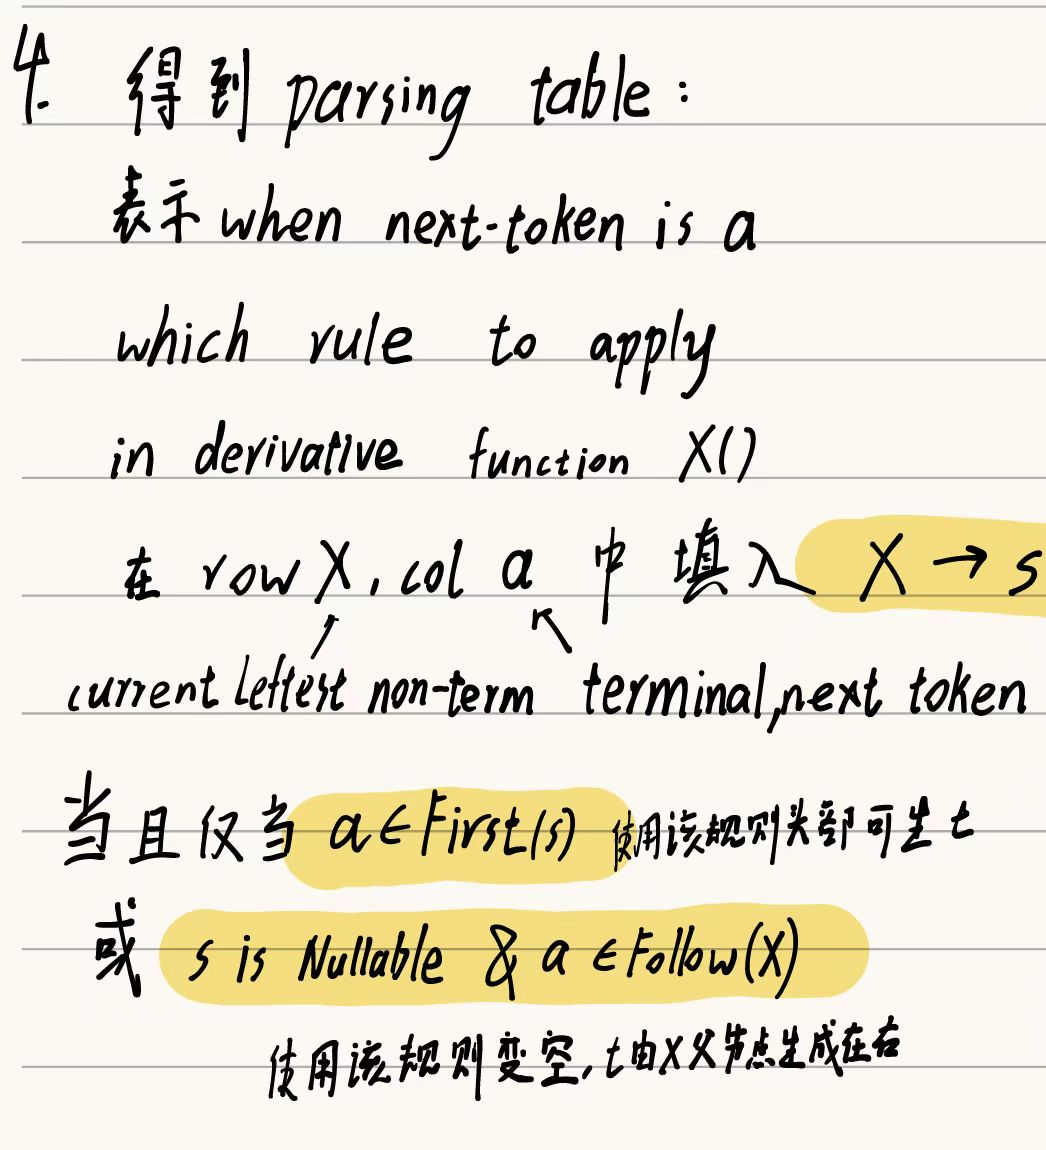 4. 得到 parsing table:
表示 when next-token is a
which rule to apply
in derivative function X()
在 row X, col a 中 填入 X → s
current leftest non-term terminal, next token
当且仅当 a ∈ First(s) 使用该规则头部可生 t
或 s is Nullable & a ∈ Follow(X)
使用该规则变空, t由X父节点生成在右